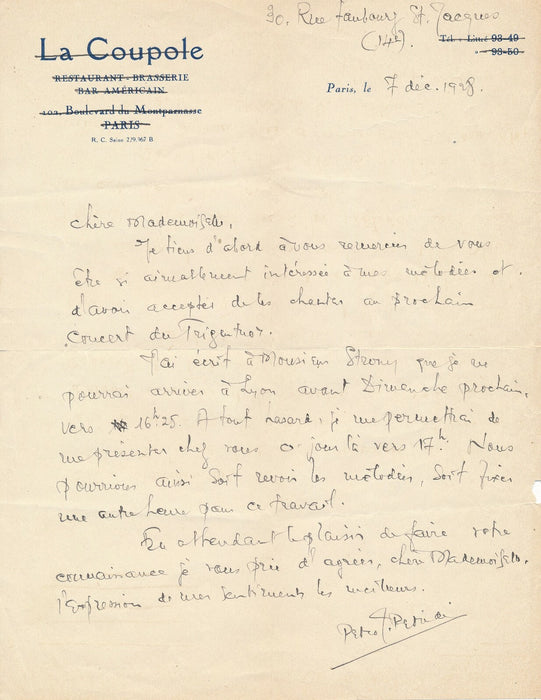 30. Rue Faubourg St. Jacques
(14e).
La Coupole
RESTAURANT - BRASSERIE
BAR AMÉRICAIN
102, Boulevard du Montparnasse
PARIS
R. C. Seine 229.967 B
Tél. : Littré 93-49
» 93-50
Paris, le 7 déc. 1928.
Chère Mademoiselle,
Je tiens d'abord à vous remercier de vous
être si aimablement intéressée à mes mélodies et
d'avoir acceptée de les chanter au prochain
concert du Trigentuor.
J'ai écrit à Monsieur que je ne
pourrai arriver à Lyon avant Dimanche prochain,
vers 16h.25. A tout hasard, je me permettrai de
me présenter chez vous ce jour là vers 17h. Nous
pourrions ainsi soit revoir les mélodies, soit fixer
une autre heure pour ce travail.
En attendant le plaisir de faire votre
connaissance je vous prie d'agréer, chère Mademoiselle,
l'Expression de mes sentiments les meilleurs.
Petro J. Petridi